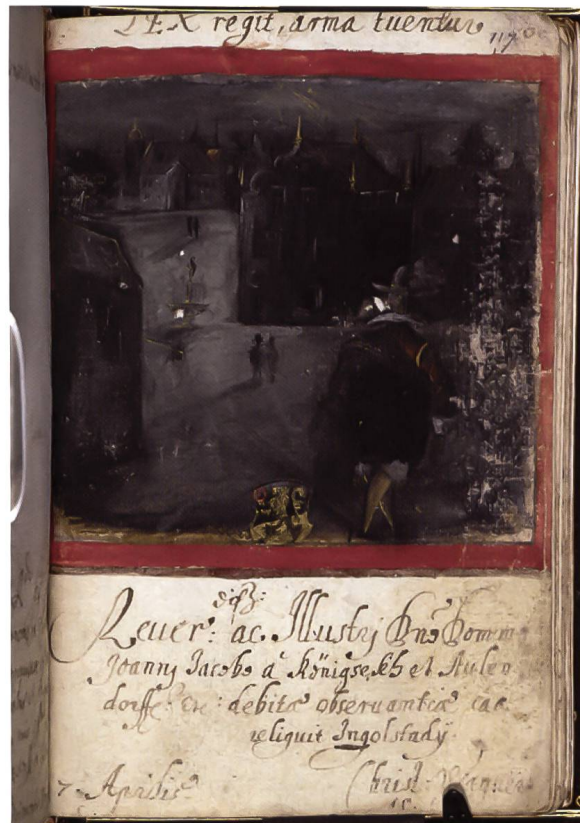 LEX regit, arma tuentur
dissᵐ:
Reuer: ac Illustrj Dn̄o Domin
Joannj Jacobo à Königsekh et Aulen
dorff: &c: debitæ obseruantiæ
reliquit Ingolstadij
7. Aprilis Christ: